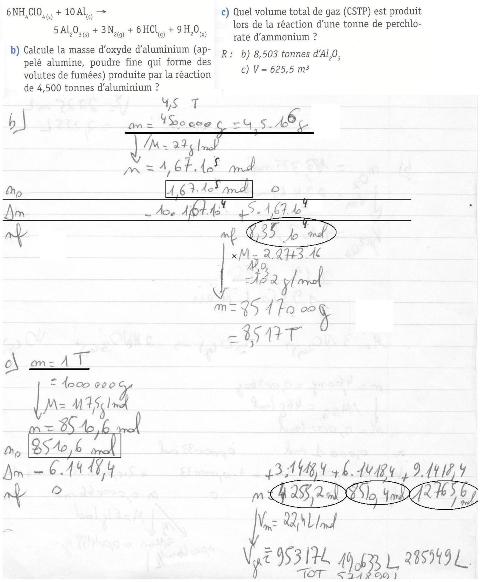 6 NH₄ClO₄₍ₛ₎ + 10 Al₍ₛ₎ →
5 Al₂O₃₍ₛ₎ + 3 N₂₍g₎ + 6 HCl₍g₎ + 9 H₂O₍g₎
b) Calcule la masse d'oxyde d'aluminium (ap-
pelé alumine, poudre fine qui forme des
volutes de fumées) produite par la réaction
de 4,500 tonnes d'aluminium ?
c) Quel volume total de gaz (CSTP) est produit
lors de la réaction d'une tonne de perchlo-
rate d'ammonium ?
R : b) 8,503 tonnes d'Al₂O₃
c) V = 625,5 m³
4,5 T
b) m = 4500000g = 4,5.10⁶g
↓ /M = 27g/mol
n = 1,67.10⁵ mol
n₀ 1,67.10⁵ mol 0
Δn - 10. 1,67.10⁴ + 5. 1,67.10⁴
nf nf 8,35.10⁴ mol
× M = 2.27+3.16
Al₂O₃
= 102 g/mol
m = 8517000g
= 8,517 T
c) m = 1 T
= 1000000g
M = 117,5g/mol
n = 8510,6 mol
n₀ 8510,6 mol
Δn - 6.1418,4 +3.1418,4 + 6.1418,4 + 9.1418,4
nf 0 n = 4255,2 mol 8510,4 mol 12765,6 mol
↓ Vm = 22,4L/mol
Vgaz = 95317L 190633L 285949L
TOT